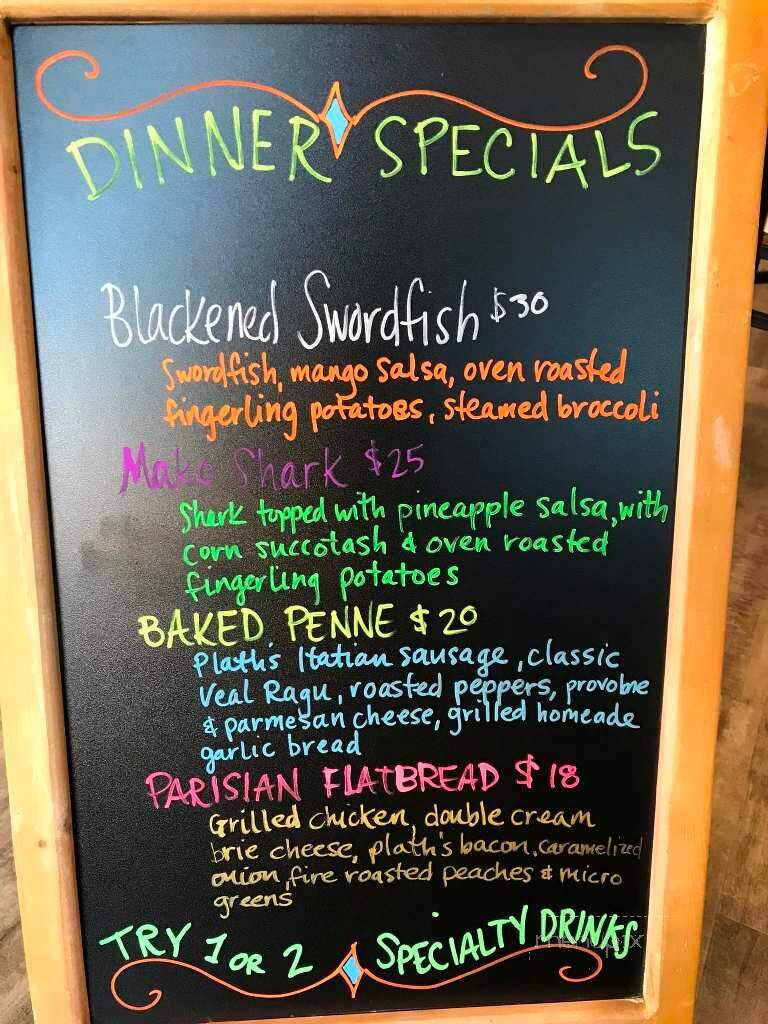 DINNER SPECIALS
Blackened Swordfish $30
Swordfish, mango salsa, oven roasted
fingerling potatoes, steamed broccoli
Mako Shark $25
Shark topped with pineapple salsa, with
corn succotash & oven roasted
fingerling potatoes
BAKED PENNE $20
Plath's Itatian sausage, classic
Veal Ragu, roasted peppers, provolone
& parmesan cheese, grilled homeade
garlic bread
PARISIAN FLATBREAD $18
Grilled chicken, double cream
brie cheese, plath's bacon, caramelized
onion, fire roasted peaches & micro
greens
TRY 1 OR 2 SPECIALTY DRINKS